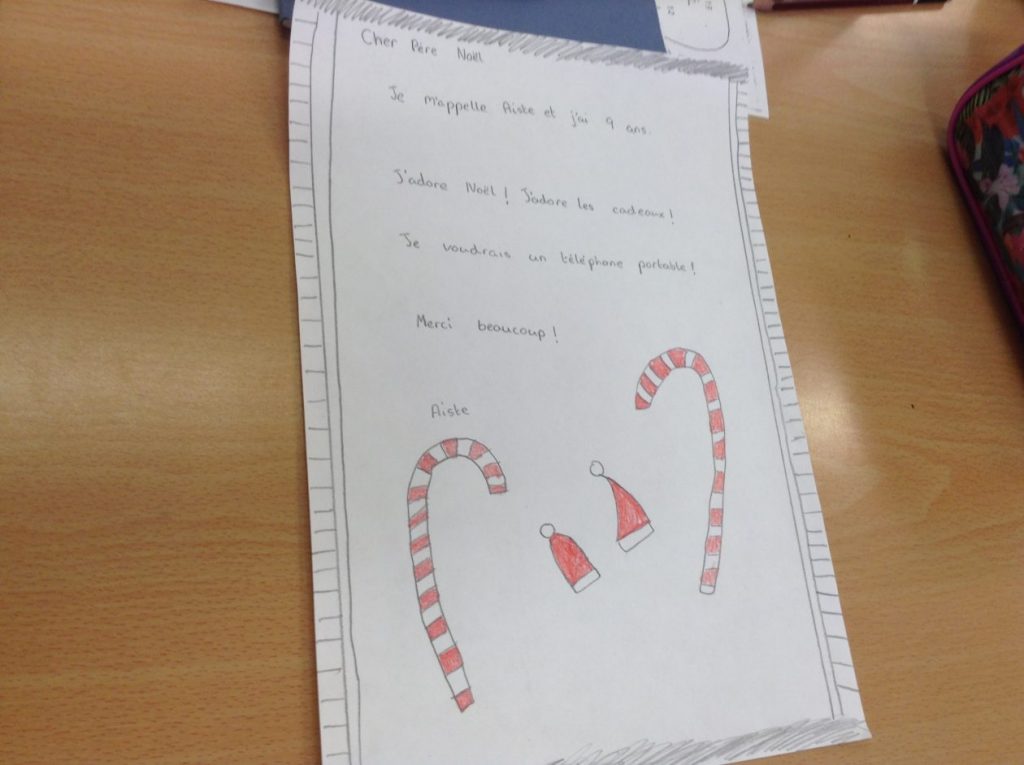 Cher Père Noël
Je m'appelle Aiste et j'ai 9 ans.
J'adore Noël! J'adore les cadeaux!
Je voudrais un téléphone portable!
Merci beaucoup!
Aiste